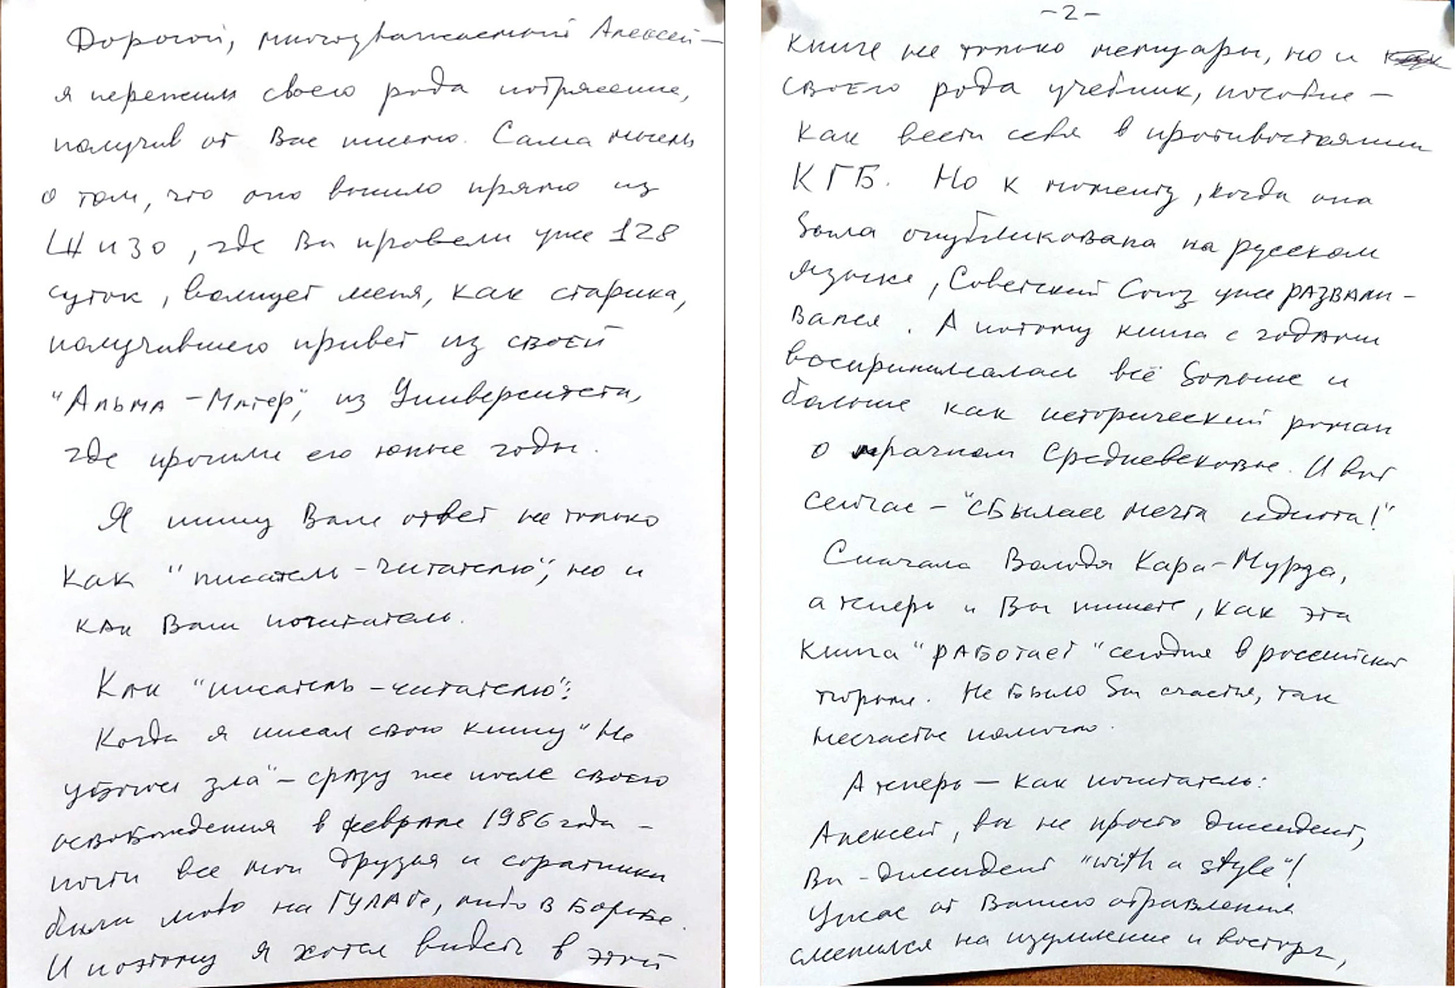 Дорогой, многоуважаемый Алексей –
я пережил своего рода потрясение,
получив от Вас письмо. Сама мысль
о том, что оно вышло прямо из
ШИЗО, где Вы провели уже 128
суток, волнует меня, как старика,
получившего привет из своей
"Альма-Матер", из Университета,
где прошли его юные годы.
Я пишу Вам ответ не только
как "писатель-читателю", но и
как Ваш почитатель.
Как "писатель-читателю":
Когда я писал свою книгу "Не
убоюсь зла" – сразу же после своего
освобождения в феврале 1986 года –
почти все мои друзья и соратники
были либо на ГУЛАГе, либо в борьбе.
И поэтому я хотел видеть в этой
-2-
книге не только мемуары, но и
своего рода учебник, пособие –
как вести себя в противостоянии
КГБ. Но к моменту, когда она
была опубликована на русском
языке, Советский Союз уже развали-
вался. А потому книга с годами
воспринималась всё больше и
больше как исторический роман
о мрачном Средневековье. И вот
сейчас – "сбылась мечта идиота!"
Сначала Володя Кара-Мурза,
а теперь и Вы пишете, как эта
книга "работает" сегодня в российской
тюрьме. Не было бы счастья, так
несчастье помогло.
А теперь – как почитатель:
Алексей, вы не просто диссидент,
Вы – диссидент "with a style"!
Ужас от Вашего отравления
сменился на изумление и восторг,